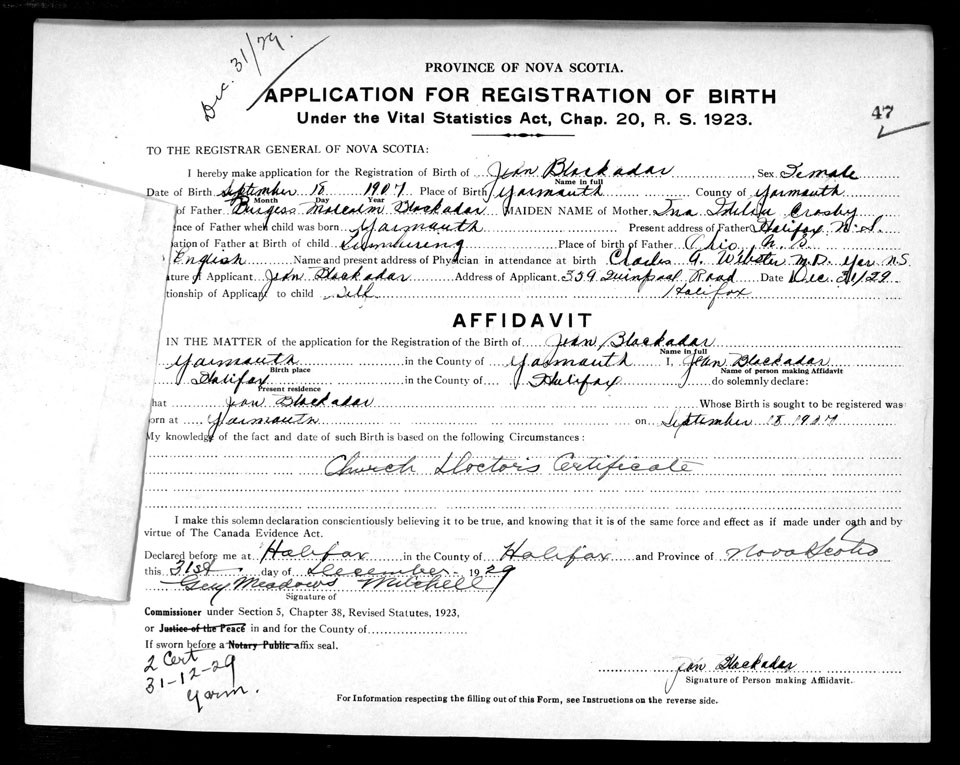 Dec. 31/29.
PROVINCE OF NOVA SCOTIA.
APPLICATION FOR REGISTRATION OF BIRTH
Under the Vital Statistics Act, Chap. 20, R. S. 1923.
47
TO THE REGISTRAR GENERAL OF NOVA SCOTIA:
I hereby make application for the Registration of Birth of Jean Blackadar Sex Female
Name in full
Date of Birth September 18 1907 Place of Birth Yarmouth County of Yarmouth
Month Day Year
of Father Burgess Malcolm Blackadar MAIDEN NAME of Mother Ina Crosby
ence of Father when child was born Yarmouth Present address of Father Halifax N.S.
pation of Father at Birth of child Lumbering Place of birth of Father Ohio, N. S.
English Name and present address of Physician in attendance at birth Charles A. Webster M.D. Yar. N.S.
ature of Applicant Jean Blackadar Address of Applicant 339 Quinpool Road Date Dec. 31/29
tionship of Applicant to child Self Halifax
AFFIDAVIT
IN THE MATTER of the application for the Registration of the Birth of Jean Blackadar
Name in full
Yarmouth in the County of Yarmouth I, Jean Blackadar
Birth place Name of person making Affidavit
Halifax in the County of Halifax do solemnly declare:
Present residence
hat Jean Blackadar Whose Birth is sought to be registered was
orn at Yarmouth on September 18 1907
My knowledge of the fact and date of such Birth is based on the following Circumstances:
Church Doctor's Certificate
I make this solemn declaration conscientiously believing it to be true, and knowing that it is of the same force and effect as if made under oath and by
virtue of The Canada Evidence Act.
Declared before me at Halifax in the County of Halifax and Province of Nova Scotia
this 31st day of December 1929
Meadows Mitchell
Signature of
Commissioner under Section 5, Chapter 38, Revised Statutes, 1923,
or Justice of the Peace in and for the County of
If sworn before a Notary Public affix seal.
2 Cert
31-12-29
Yarm.
Jean Blackadar
Signature of Person making Affidavit.
For Information respecting the filling out of this Form, see Instructions on the reverse side.